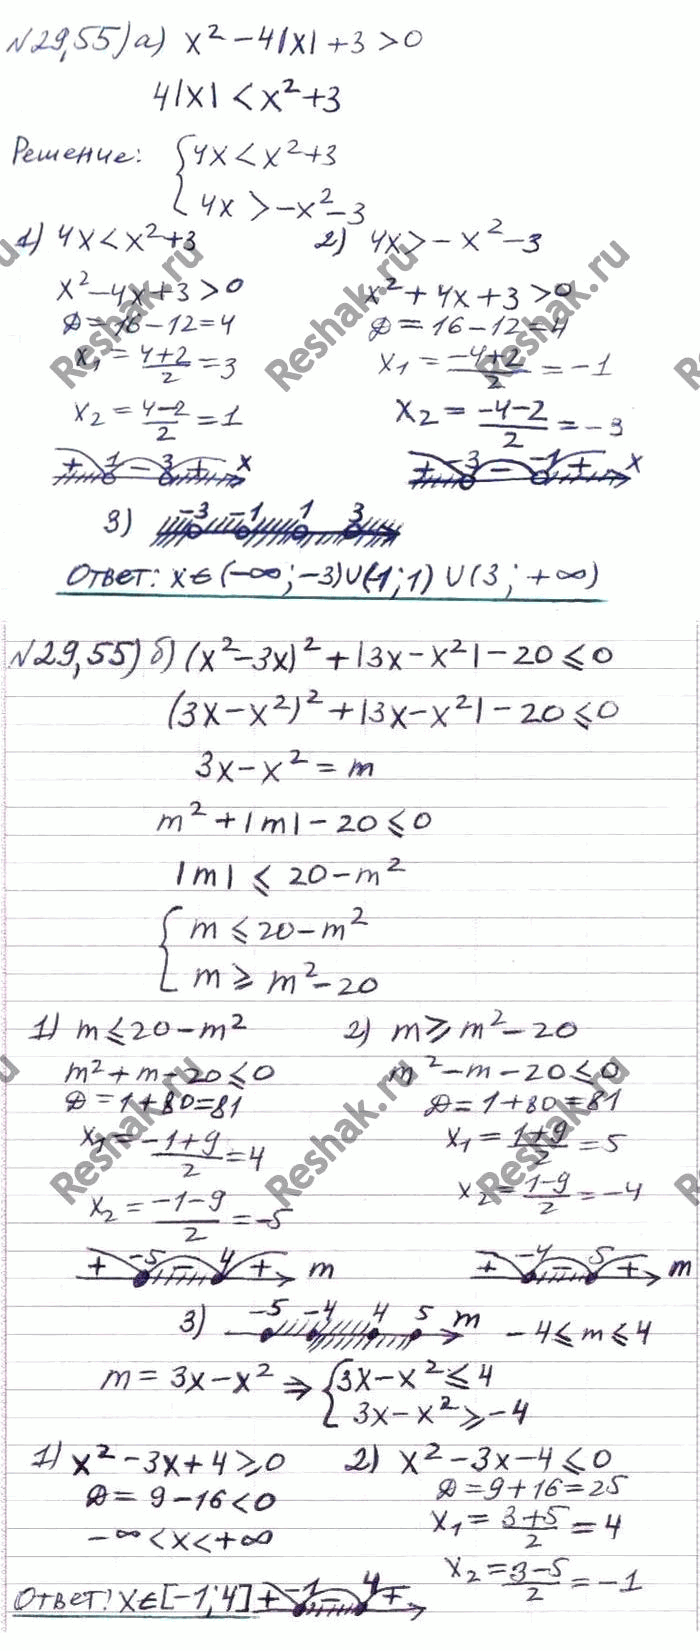 №29,55) а) x² - 4|x| + 3 > 0
4|x| < x² + 3
Решение: { 4x < x² + 3
4x > -x² - 3
1) 4x < x² + 3
x² - 4x + 3 > 0
D = 16 - 12 = 4
x₁ = (4+2)/2 = 3
x₂ = (4-2)/2 = 1
+ 1 - 3 + x
2) 4x > -x² - 3
x² + 4x + 3 > 0
D = 16 - 12 = 4
x₁ = (-4+2)/2 = -1
x₂ = (-4-2)/2 = -3
+ -3 - -1 + x
3) -3 -1 1 3
Ответ: x ∈ (-∞; -3) ∪ (-1; 1) ∪ (3; +∞)
№29,55) б) (x² - 3x)² + |3x - x²| - 20 ≤ 0
(3x - x²)² + |3x - x²| - 20 ≤ 0
3x - x² = m
m² + |m| - 20 ≤ 0
|m| ≤ 20 - m²
{ m ≤ 20 - m²
m ≥ m² - 20
1) m ≤ 20 - m²
m² + m - 20 ≤ 0
D = 1 + 80 = 81
x₁ = (-1+9)/2 = 4
x₂ = (-1-9)/2 = -5
+ -5 - 4 + m
2) m ≥ m² - 20
m² - m - 20 ≤ 0
D = 1 + 80 = 81
x₁ = (1+9)/2 = 5
x₂ = (1-9)/2 = -4
+ -4 - 5 + m
3) -5 -4 4 5 m -4 ≤ m ≤ 4
m = 3x - x² ⇒ { 3x - x² ≤ 4
3x - x² ≥ -4
1) x² - 3x + 4 ≥ 0
D = 9 - 16 < 0
-∞ < x < +∞
2) x² - 3x - 4 ≤ 0
D = 9 + 16 = 25
x₁ = (3+5)/2 = 4
x₂ = (3-5)/2 = -1
Ответ: x ∈ [-1; 4] + -1 - 4 +
Reshak.ru
Reshak.ru
Reshak.ru
Reshak.ru
Reshak.ru
Reshak.ru